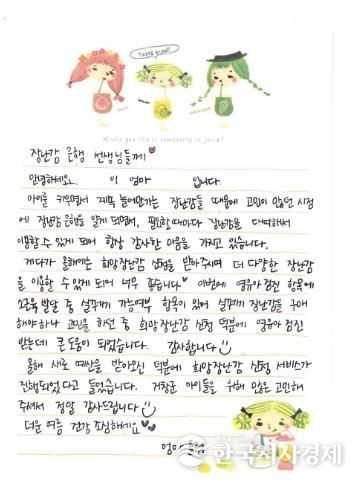 Taste great!
Would you like is somebody is juice?
장난감 은행 선생님들께
안녕하세요. 이 엄마 입니다
아이를 키우면서 계속 늘어만가는 장난감들 때문에 고민이 많았던 시점
에 장난감 은행을 알게 되면서, 필요할 때마다 장난감을 대여해서
이용할 수 있게 되어 항상 감사한 마음을 가지고 있습니다.
게다가 올해에는 희망장난감 신청을 받아주시며 더 다양한 장난감
을 이용할 수 있게 되어 너무 좋습니다 이번에 영유아 검진 항목에
소근육 발달 중 실꿰기 가능여부 항목이 있어 실꿰기 장난감을 구매
해야하나 고민을 하던 중 희망 장난감 신청 덕분에 영유아 검진
받는데 큰 도움이 되었습니다. 감사합니다
올해 새로 예산을 받아오신 덕분에 희망장난감 신청 서비스가
진행되었다고 들었습니다. 거창군 아이들을 위해 많은 고민해
주셔서 정말 감사드립니다
더운 여름 건강 조심하세요
엄마 드림
한국시사경제